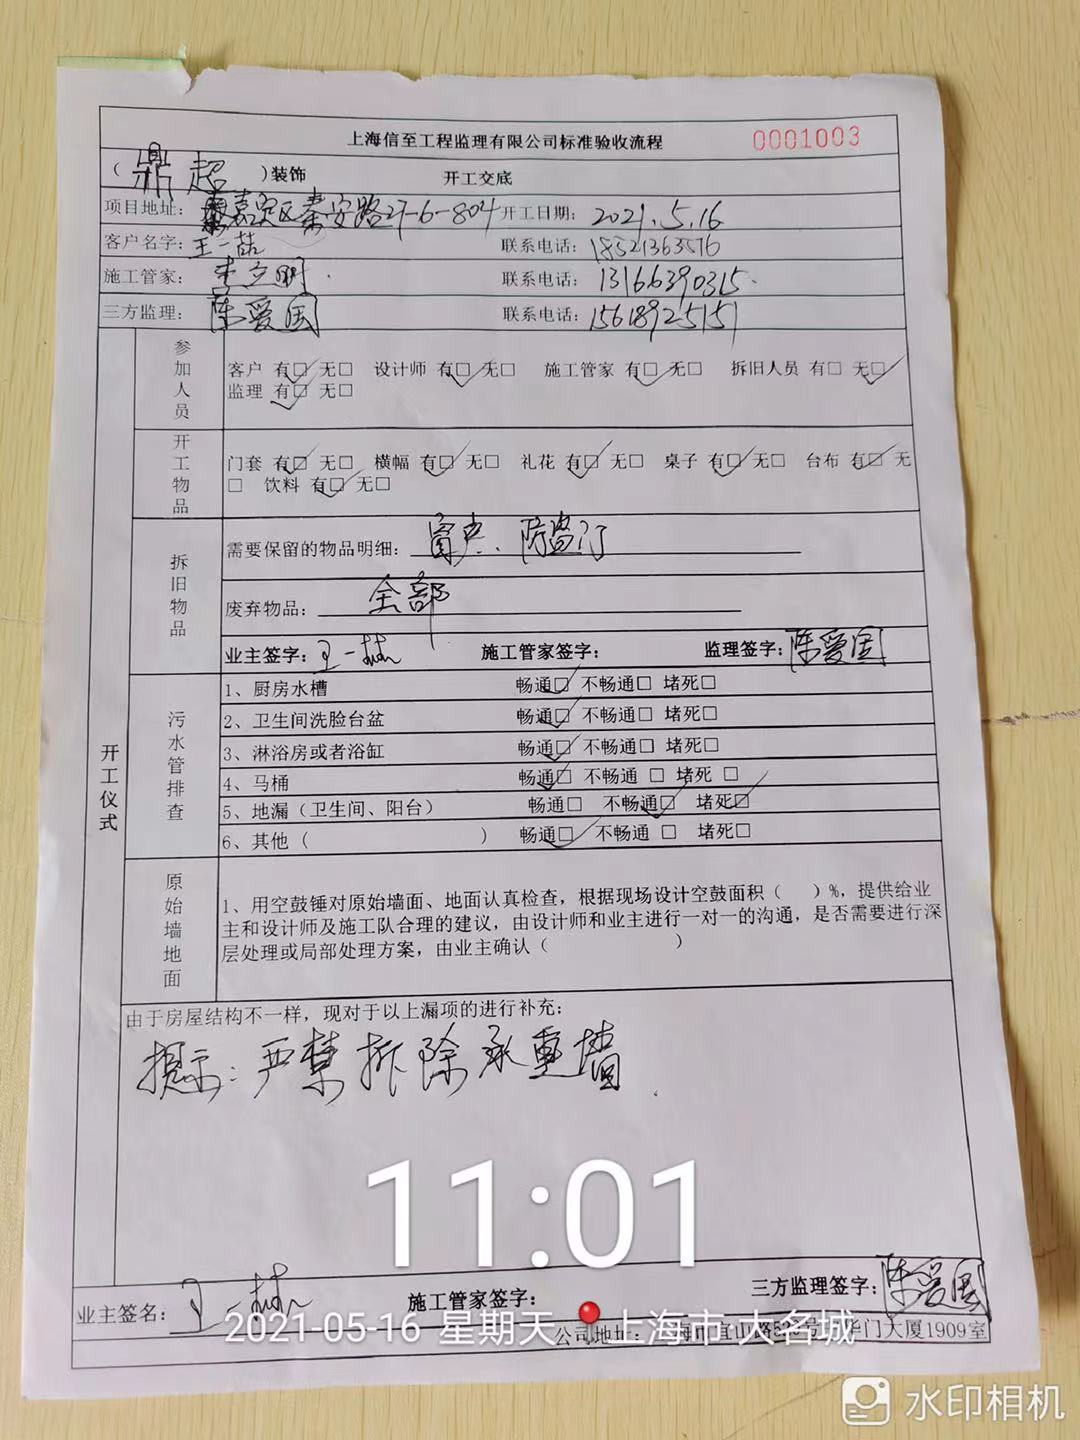 上海信至工程监理有限公司标准验收流程 0001003
(鼎超)装饰 开工交底
项目地址: 嘉定区秦安路27-6-804 开工日期: 2021.5.16
客户名字: 王一喆 联系电话: 18521363576
施工管家: 李文明 联系电话: 13166390315
三方监理: 陈爱国 联系电话: 15618925151
参加人员
客户 有☑ 无□ 设计师 有☑ 无□ 施工管家 有☑ 无□ 拆旧人员 有□ 无☑
监理 有☑ 无□
开工物品
门套 有☑ 无□ 横幅 有☑ 无□ 礼花 有☑ 无□ 桌子 有☑ 无□ 台布 有☑ 无
□ 饮料 有☑ 无□
拆旧物品
需要保留的物品明细: 窗户、防盗门
废弃物品: 全部
业主签字: 王一喆 施工管家签字: 监理签字: 陈爱国
开工仪式
污水管排查
1、厨房水槽 畅通☑ 不畅通□ 堵死□
2、卫生间洗脸台盆 畅通☑ 不畅通□ 堵死□
3、淋浴房或者浴缸 畅通☑ 不畅通□ 堵死□
4、马桶 畅通☑ 不畅通 □ 堵死 □
5、地漏(卫生间、阳台) 畅通□ 不畅通☑ 堵死☑
6、其他( ) 畅通☑ 不畅通 □ 堵死□
原始墙地面
1、用空鼓锤对原始墙面、地面认真检查，根据现场设计空鼓面积( )%，提供给业
主和设计师及施工队合理的建议，由设计师和业主进行一对一的沟通，是否需要进行深
层处理或局部处理方案，由业主确认( )
由于房屋结构不一样，现对于以上漏项的进行补充:
提示:严禁拆除承重墙.
11:01
业主签名: 王一喆 施工管家签字: 三方监理签字: 陈爱国
2021-05-16 星期天 上海市·大名城
公司地址: 华门大厦1909室
水印相机